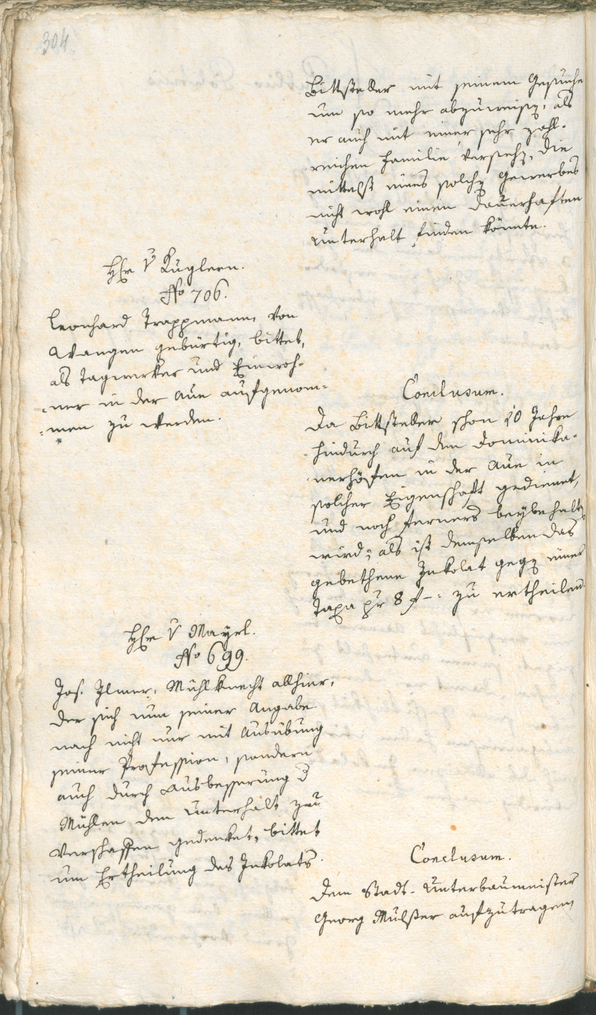 304.
Bittsteller mit seinem Gesuche
um so mehr abzuweisen, als
er auch mit einer sehr zahl-
reichen Familie versehen, die
mittelst eines solchen Gewerbes
nicht wohl einen dauerhaften
Unterhalt finden könnte.
Hr. v Kuglern.
No 706.
Leonhard Trappmann, von
Wangen gebürtig, bittet,
als Tagwerker und Einwoh-
ner in der Aue aufgenom-
men zu werden.
Conclusum.
Da Bittsteller schon 10 Jahre
hindurch auf den Dominika-
nerhöfen in der Aue in
solcher Eigenschaft gedienet,
und noch ferners beybehalten
wird; als ist demselben das
gebethene Inkolat gegen einer
Taxa pr 8 f –: zu ertheilen
Hr. v Mayel.
No 699.
Jos. Ilmer, Mühlknecht allhier,
der sich nun seiner Angabe
nach nicht nur mit Ausübung
seiner Profession, sondern
auch durch Ausbesserung d
Mühlen den Unterhalt zu
verschaffen gedenket, bittet
um Ertheilung des Inkolats.
Conclusum.
Dem Stadt-Unterbaumeister
Georg Mülster aufzutragen